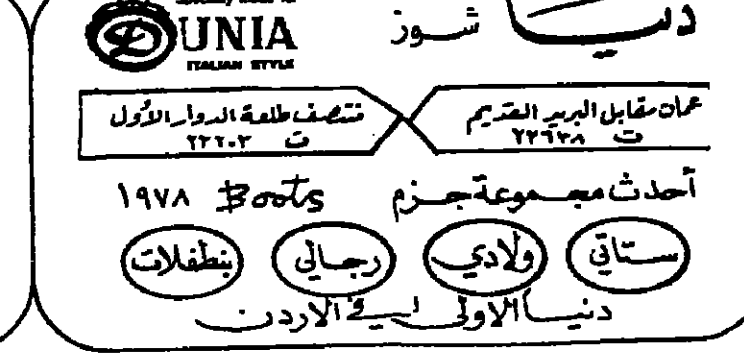 دنيا شوز
DUNIA
ITALIAN STYLE
عمان مقابل البريد القديم
ت ٢٢٦٣٨
منتصف طلعة الدوار الأول
ت ٢٢٢٠٣
أحدث مجموعة جزم Boots ١٩٧٨
ستاتي ولادي رجالي بنطفلات
دنيا الاولى في الاردن